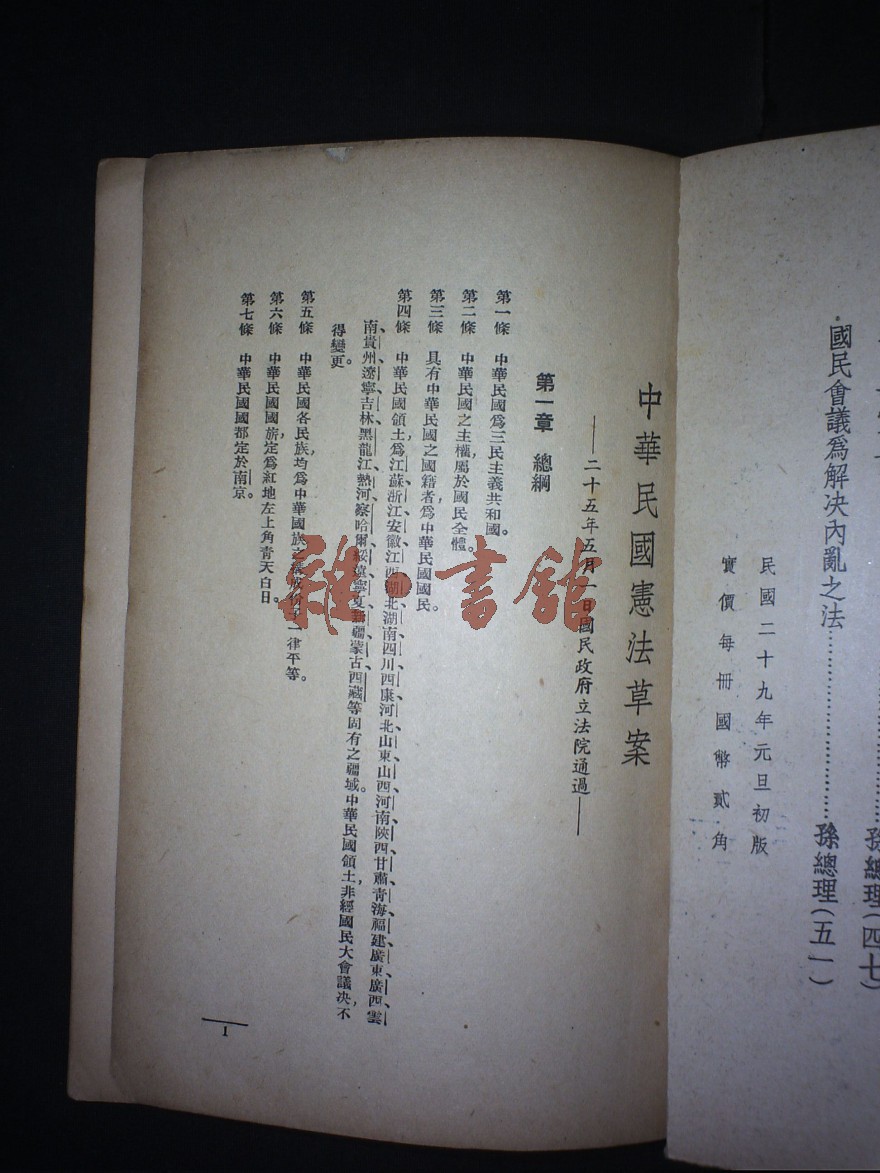 國民會議爲解决內亂之法……………………孫總理(五一)
孫總理(四七)
民國二十九年元旦初版
實價每冊國幣貳角
中華民國憲法草案
——二十五年五月一日國民政府立法院通過——
第一章 總綱
第一條 中華民國爲三民主義共和國。
第二條 中華民國之主權屬於國民全體。
第三條 具有中華民國之國籍者,爲中華民國國民。
第四條 中華民國領土爲江蘇、浙江、安徽、江西、湖北、湖南、四川、西康、河北、山東、山西、河南、陝西、甘肅、青海、福建、廣東、廣西、雲
南、貴州、遼寧、吉林、黑龍江、熱河、察哈爾、綏遠、寧夏、新疆、蒙古、西藏等固有之疆域。中華民國領土,非經國民大會議决,不
得變更。
第五條 中華民國各民族,均爲中華國族之構成份子,一律平等。
第六條 中華民國國旂,定爲紅地左上角青天白日。
第七條 中華民國國都定於南京。
1
雜·書館